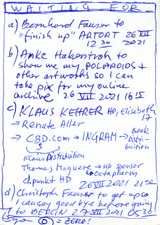 WAITING FOR
a) Bernhard Fauser to
"finish up" ARTORT 26 VII
12 30 2021
b) Anke Habentroth to
show me my POLAROIDS +
other artworks so I can
take pix for my online
archive 26 VII 2021 16 15
c) KLAUS KEHRER HD, Elisabeth
+ Renate Aller 17
→ CBD.com → INGRAM → Book
Klaus Distribution
Thomas Maguere → HD sponsor
dpunkt HD → Octapharm
26 VII 2021 21
d) Christoph Fauser to get up so
I can say good bye before going
to BERLIN 27 VII 2021 05 30
= ZERO!